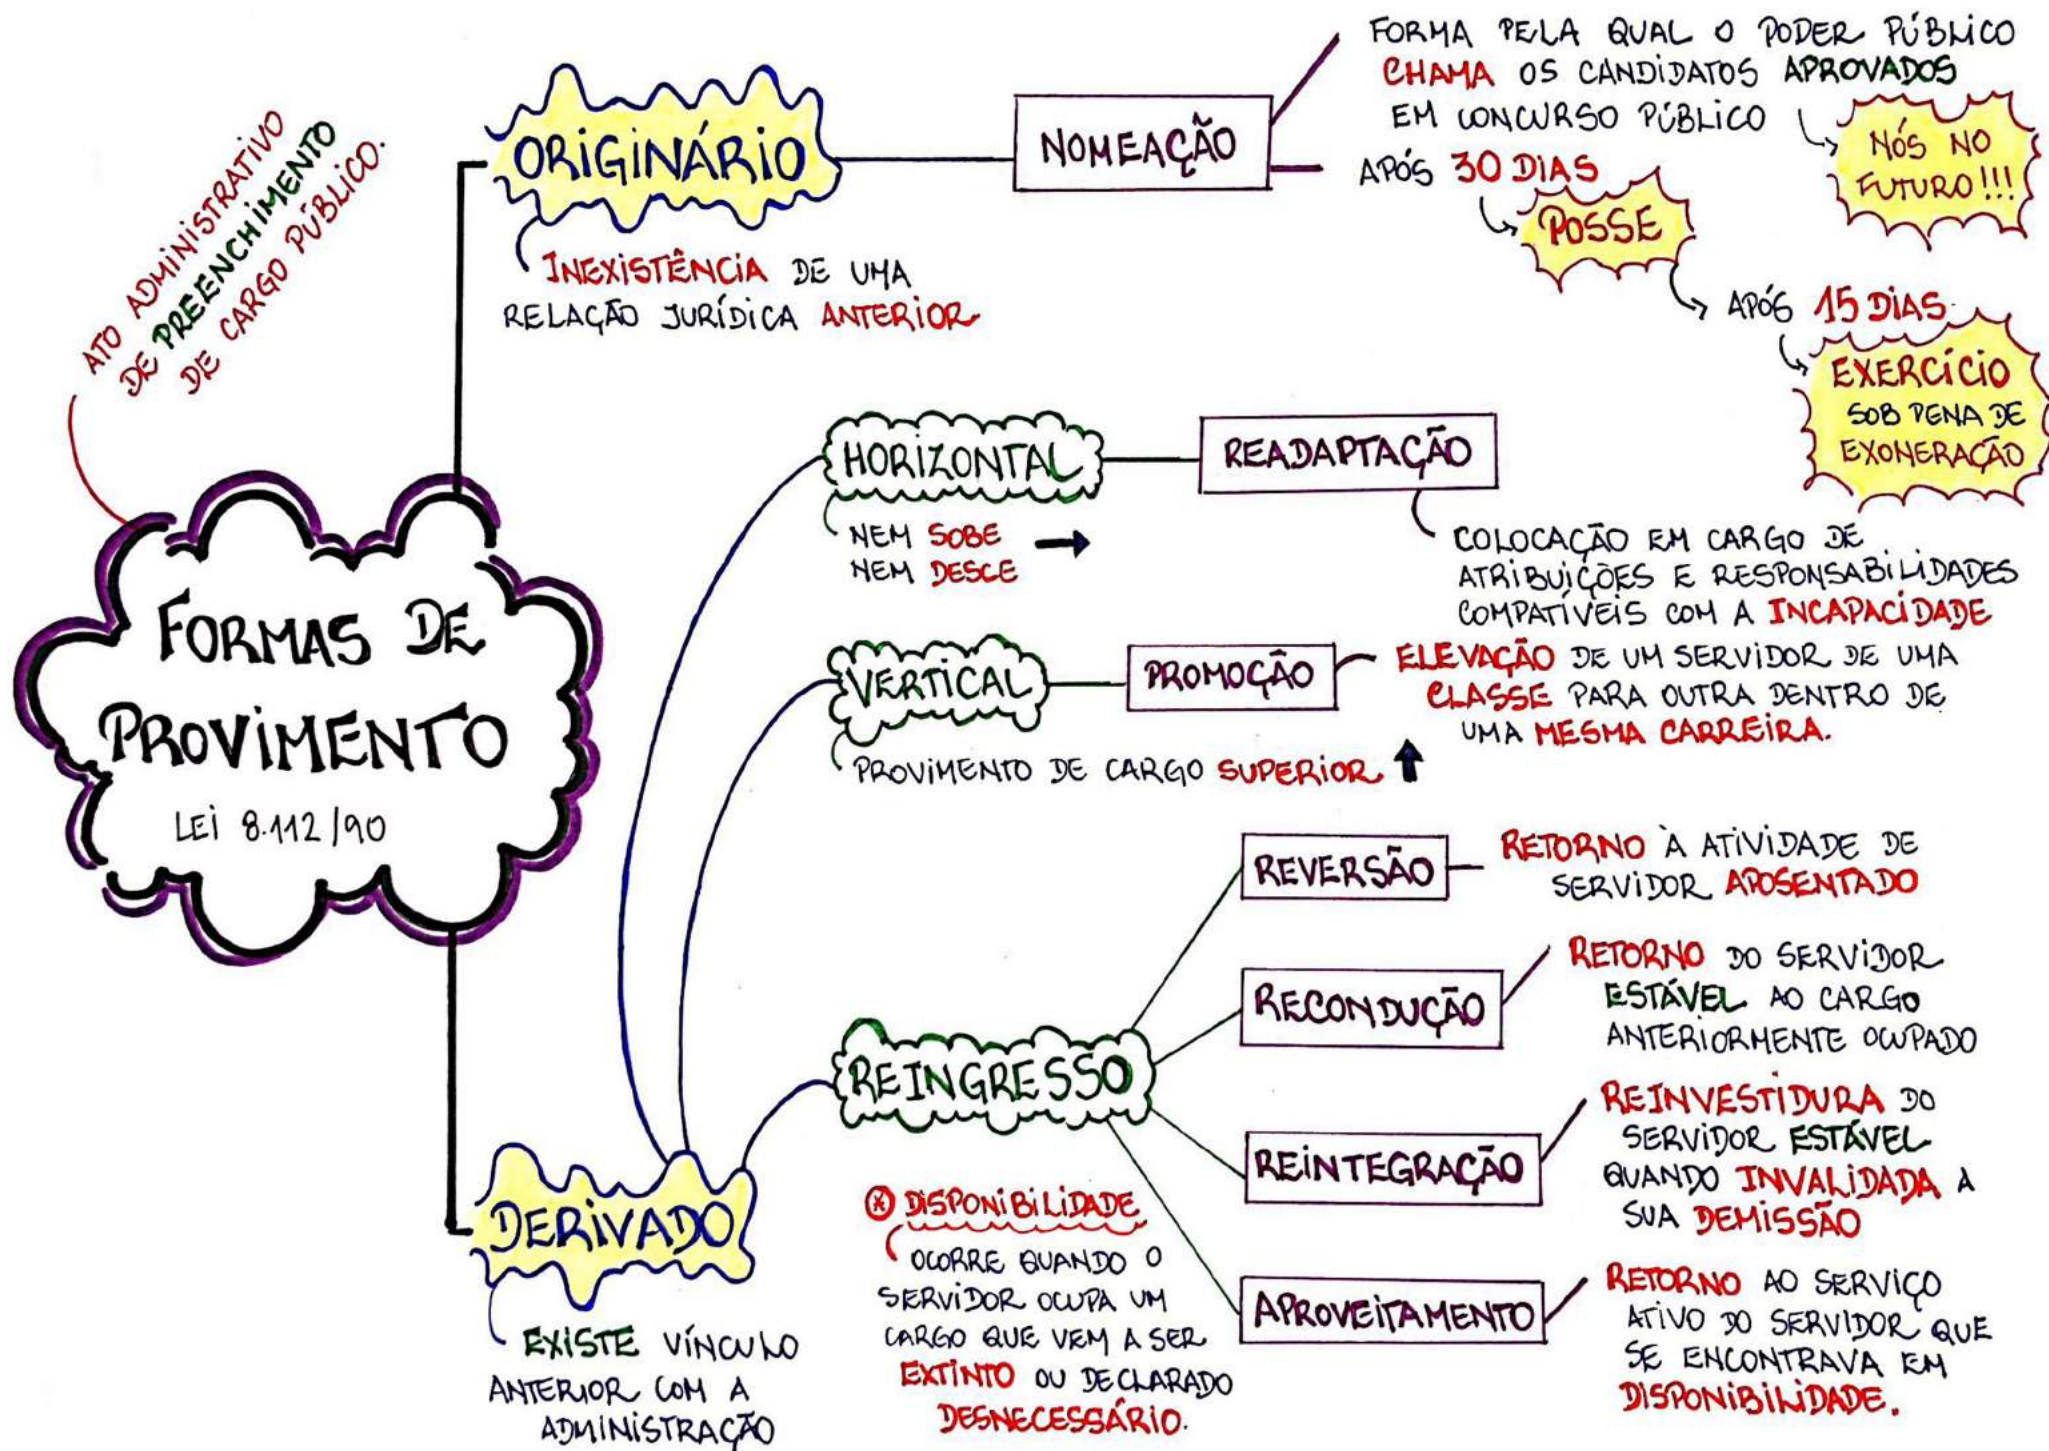 ATO ADMINISTRATIVO
DE PREENCHIMENTO
DE CARGO PÚBLICO.
FORMAS DE
PROVIMENTO
LEI 8.112/90
ORIGINÁRIO
INEXISTÊNCIA DE UMA
RELAÇÃO JURÍDICA ANTERIOR
NOMEAÇÃO
FORMA PELA QUAL O PODER PÚBLICO
CHAMA OS CANDIDATOS APROVADOS
EM CONCURSO PÚBLICO
NÓS NO
FUTURO!!!
APÓS 30 DIAS
POSSE
APÓS 15 DIAS
EXERCÍCIO
SOB PENA DE
EXONERAÇÃO
DERIVADO
EXISTE VÍNCULO
ANTERIOR COM A
ADMINISTRAÇÃO
HORIZONTAL
NEM SOBE
NEM DESCE
READAPTAÇÃO
COLOCAÇÃO EM CARGO DE
ATRIBUIÇÕES E RESPONSABILIDADES
COMPATÍVEIS COM A INCAPACIDADE
VERTICAL
PROVIMENTO DE CARGO SUPERIOR
PROMOÇÃO
ELEVAÇÃO DE UM SERVIDOR DE UMA
CLASSE PARA OUTRA DENTRO DE
UMA MESMA CARREIRA.
REINGRESSO
REVERSÃO
RETORNO À ATIVIDADE DE
SERVIDOR APOSENTADO
RECONDUÇÃO
RETORNO DO SERVIDOR
ESTÁVEL AO CARGO
ANTERIORMENTE OCUPADO
REINTEGRAÇÃO
REINVESTIDURA DO
SERVIDOR ESTÁVEL
QUANDO INVALIDADA A
SUA DEMISSÃO
APROVEITAMENTO
RETORNO AO SERVIÇO
ATIVO DO SERVIDOR QUE
SE ENCONTRAVA EM
DISPONIBILIDADE.
* DISPONIBILIDADE
OCORRE QUANDO O
SERVIDOR OCUPA UM
CARGO QUE VEM A SER
EXTINTO OU DECLARADO
DESNECESSÁRIO.